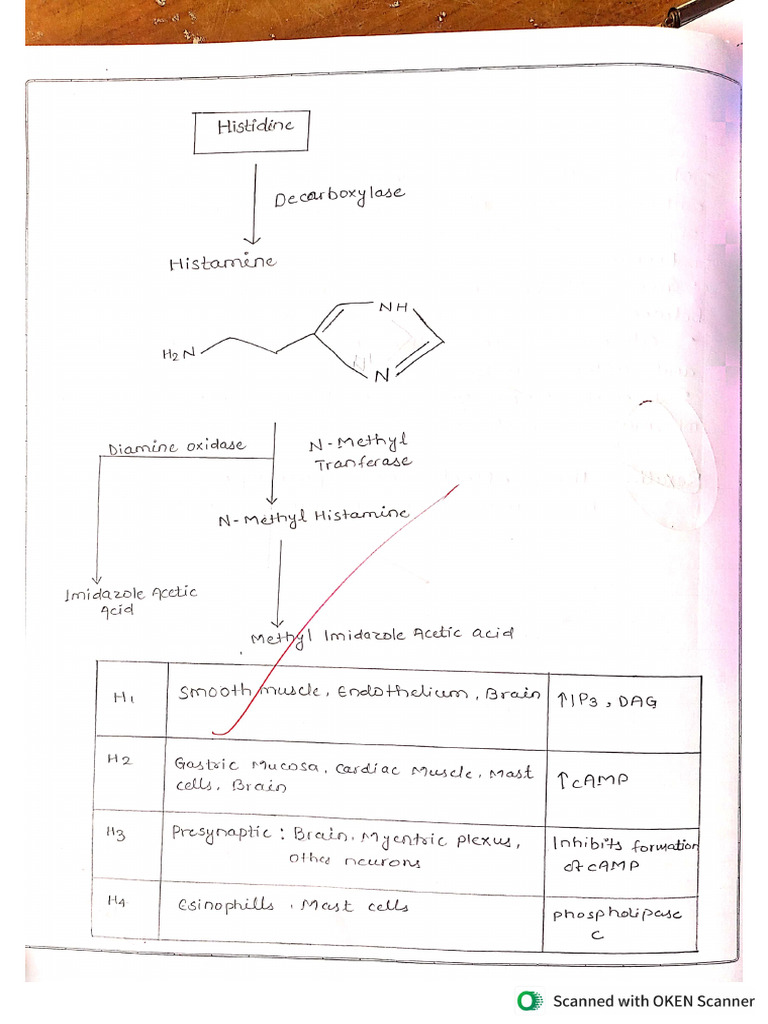 Histidine
Decarboxylase
Histamine
NH
H₂N
N
Diamine oxidase
N-Methyl
Tranferase
N-Methyl Histamine
Imidazole Acetic
Acid
Methyl Imidazole Acetic acid
H1 Smooth muscle, Endothelium, Brain ↑IP3, DAG
H2 Gastric Mucosa, Cardiac Muscle, Mast
cells, Brain ↑cAMP
H3 Presynaptic : Brain, Myentric plexus,
other neurons Inhibits formation
of cAMP
H4 Esinophills, Mast cells phospholipase
C
Scanned with OKEN Scanner